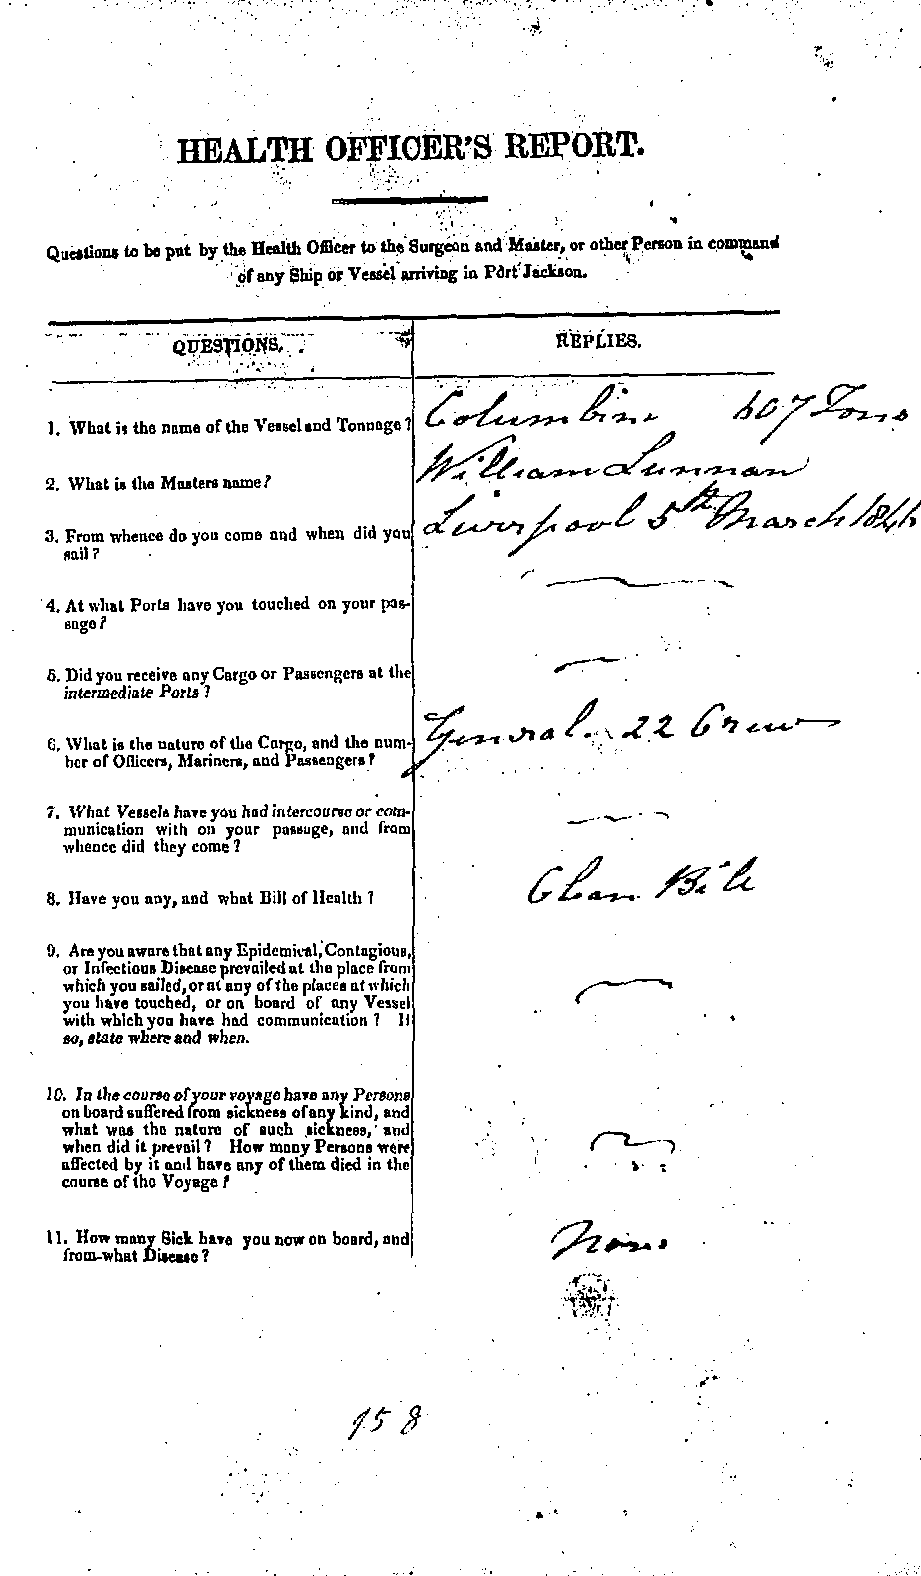 HEALTH OFFICER'S REPORT.
Questions to be put by the Health Officer to the Surgeon and Master, or other Person in command
of any Ship or Vessel arriving in Port Jackson.
QUESTIONS.
REPLIES.
1. What is the name of the Vessel and Tonnage?
Columbine 607 Tons
2. What is the Masters name?
William Lunnan
3. From whence do you come and when did you
sail?
Liverpool 5th March 1846
4. At what Ports have you touched on your pas-
sage?
5. Did you receive any Cargo or Passengers at the
intermediate Ports?
6. What is the nature of the Cargo, and the num-
ber of Officers, Mariners, and Passengers?
General. 22 Crew
7. What Vessels have you had intercourse or com-
munication with on your passage, and from
whence did they come?
8. Have you any, and what Bill of Health?
Clean Bill
9. Are you aware that any Epidemical, Contagious,
or Infectious Disease prevailed at the place from
which you sailed, or at any of the places at which
you have touched, or on board of any Vessel
with which you have had communication? If
so, state where and when.
10. In the course of your voyage have any Persons
on board suffered from sickness of any kind, and
what was the nature of such sickness, and
when did it prevail? How many Persons were
affected by it and have any of them died in the
course of the Voyage?
11. How many Sick have you now on board, and
from what Disease?
None
158